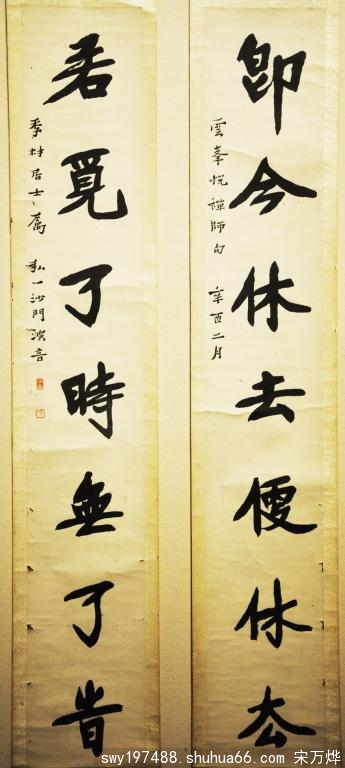 卽今休去便休厺
雲峯悅禪師句 辛酉二月
若覓了時無了旹
居士屬 弘一沙門演音
swy197488.shuhua66.com 宋万烨